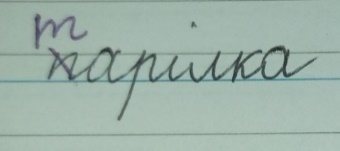 тарілка